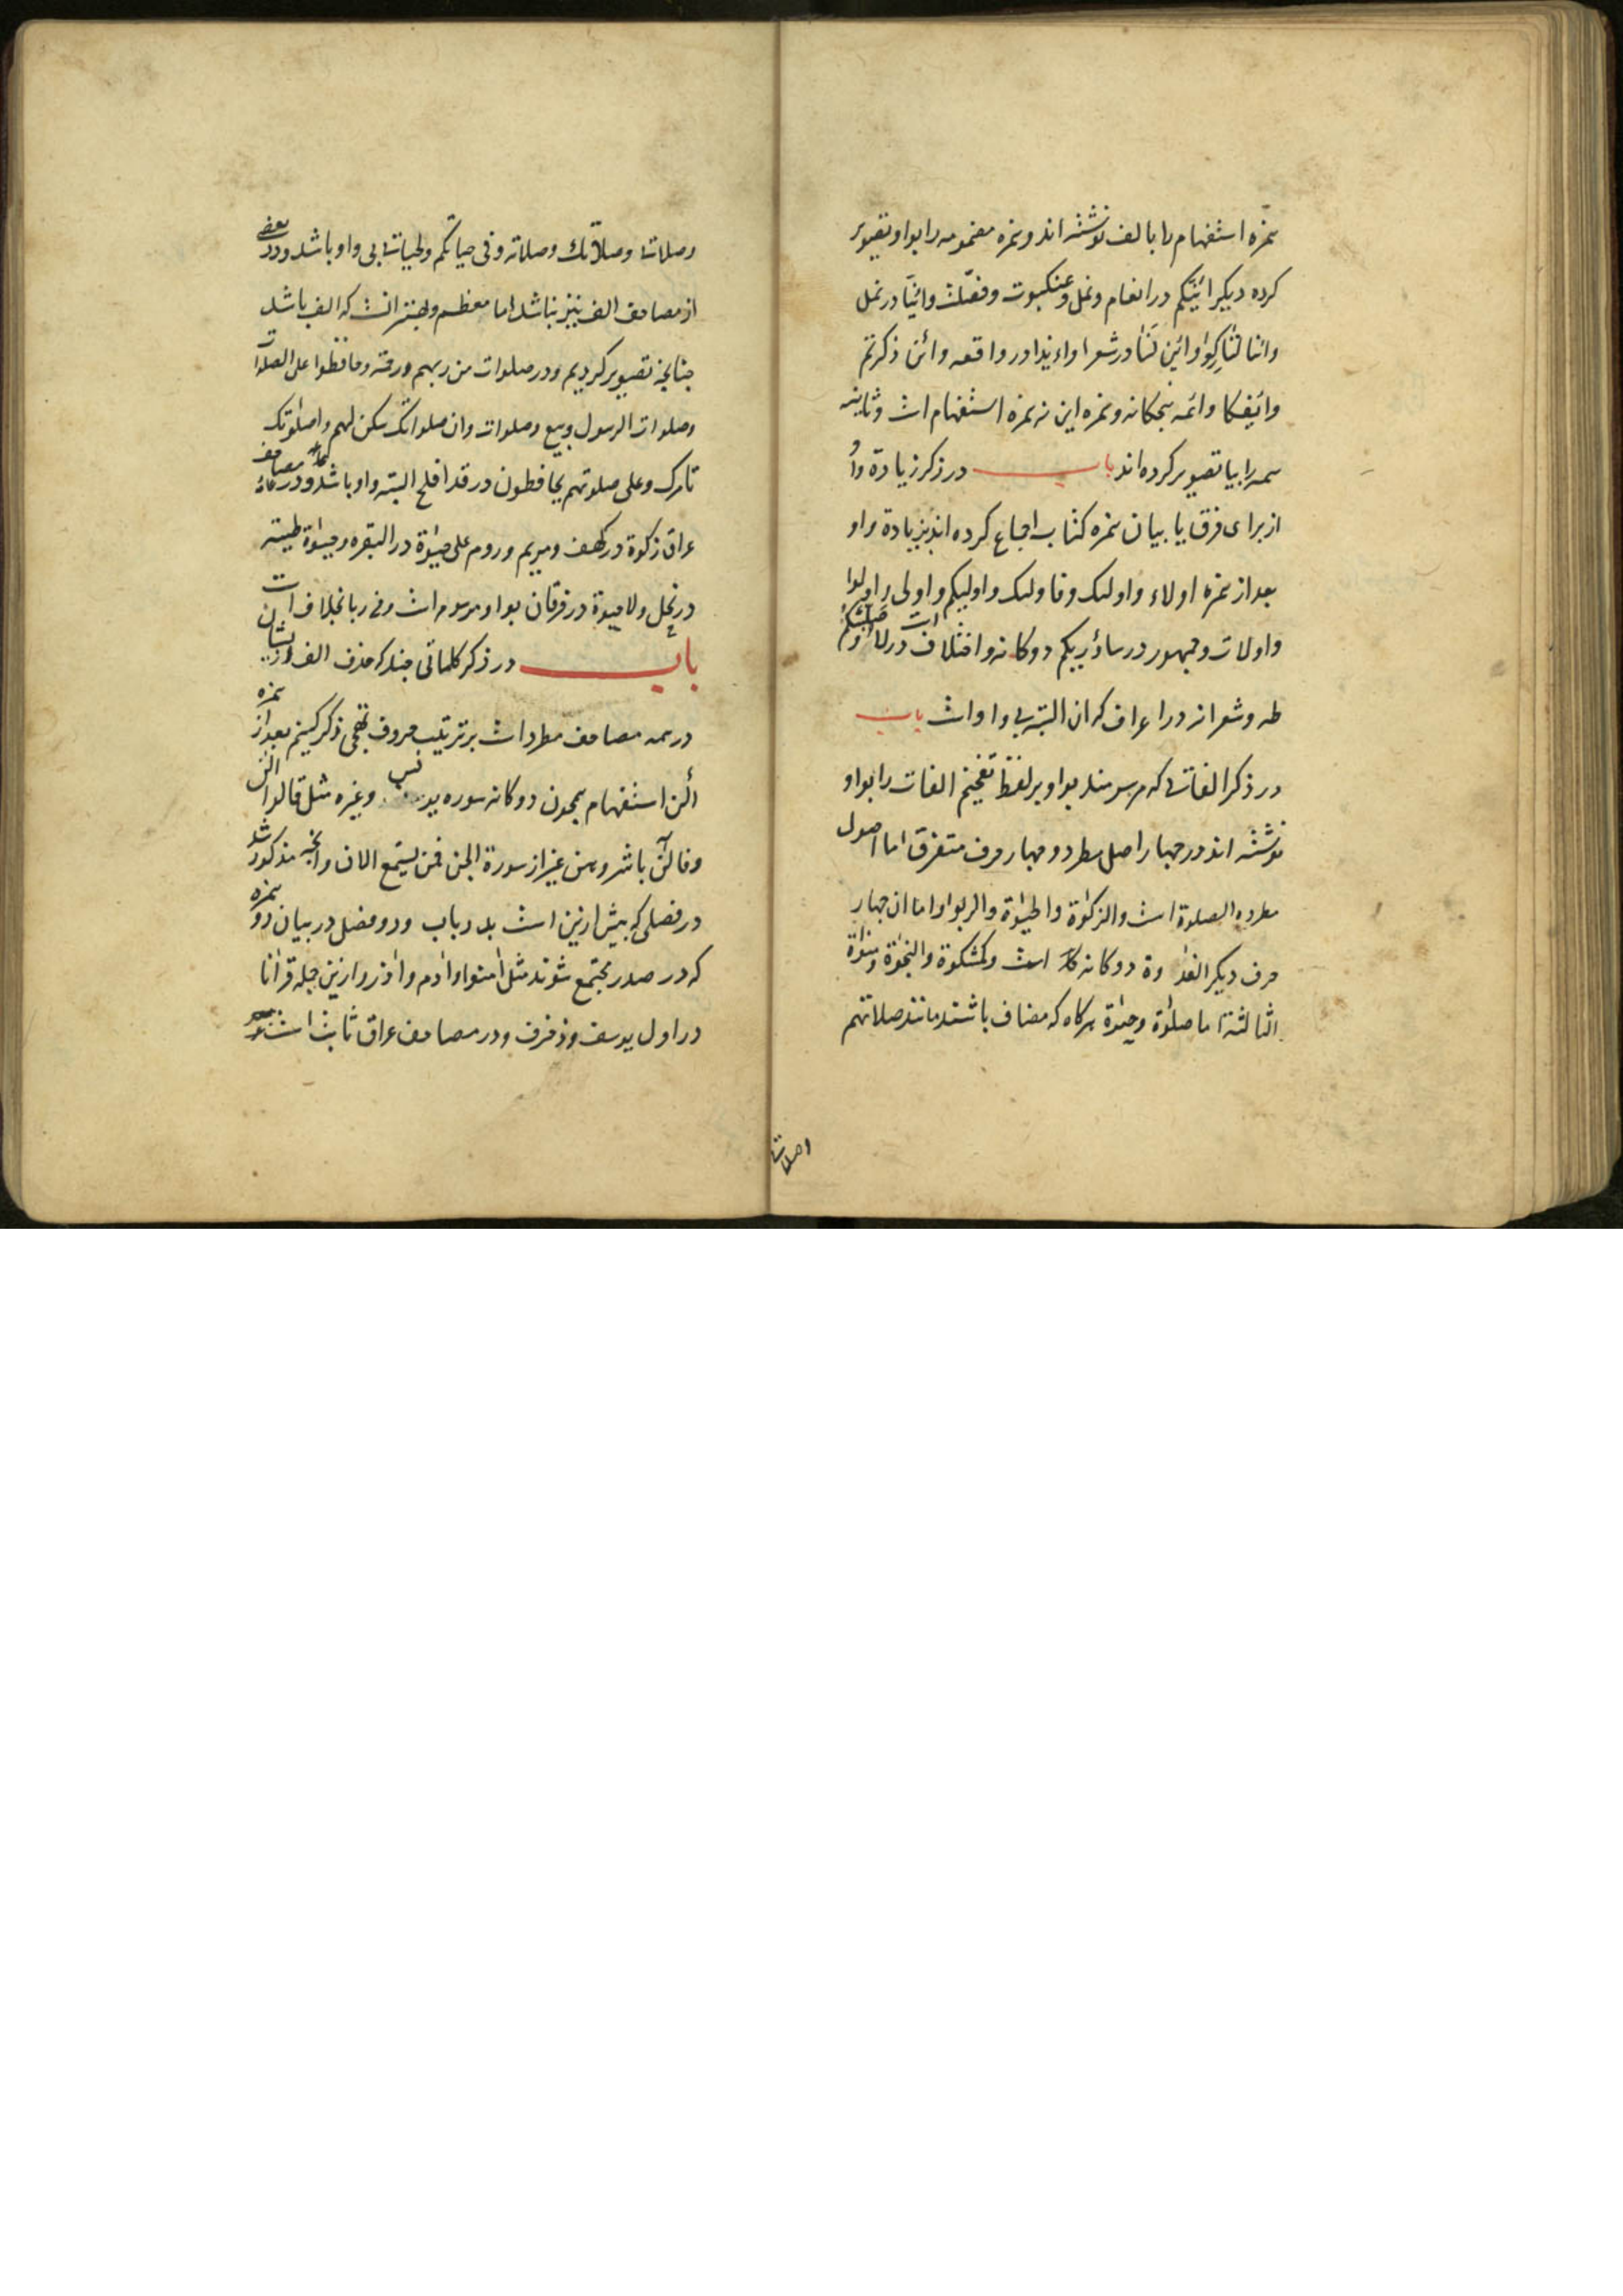 همزه استفهام را با الف نوشته اند و همزه مضمومه را بواو تصویر
کرده دیگر ائنکم در انعام و نمل و عنکبوت و فصلت و ائنا در نمل
وائنا لتارکوا وائن لنا در شعرا واءیذا در واقعه وائن ذکرتم
وائفکا وائمه پنجکانه و همزه این نه همزه استفهام است و ثانیه
همه را بیا تصویر کرده اند باب در ذکر زیادة واو
از برای فرق یا بیان همزه کتاب اجماع کرده اند بزیادة واو
بعد از همزه اولاء و اولئک و فاولئک و اولیکم و اولی و اولوا
و اولات و جمهور در ساوریکم دوکانه و اختلاف است در لاوصلبنکم
طه و شعرا نه در اعراف که ان البته بی واو است باب
در ذکر الفاتی که مرسومند بواو بر لفظ تفخیم الفات را بواو
نوشته اند در چهار اصل مطرد و چهار حرف متفرق اما اصول
مطرده الصلوة است والزکوة والحیوة والربوا و اما ان چهار
حرف دیکر الغدوة دوکانه است و کمشکوة والنجوة و منوة
الثالثة اما صلوة و حیوة هرکاه که مضاف باشند مانند صلاتهم
وصلاتنا
وصلاتنا وصلاتك وصلاته و فی حیاتکم و لحیاتنا بی واو باشد و در بعضی
از مصاحف الف نیز نباشد اما معظم و بهتر انست که الف باشد
چنانچه تصویر کردیم و در صلوات من ربهم ورحمة و حافظوا علی الصلوات
وصلوات الرسول و بیع وصلوات وان صلواتک سکن لهم و اصلوتک
تامرک و علی صلوتهم یحافظون در قد افلح البته واو باشد و در مصاحف
عراق زکوة در کهف و مریم و روم علی حیوة در البقره و حیوة طیبة
در نحل ولا حیوة در فرقان بواو مرسوم است و فی ربا بخلاف است
باب در ذکر کلماتی چند که حذف الف از ایشان
در همه مصاحف مطرد است بر ترتیب حروف تهجی ذکر کنیم بعد از همزه
الن استفهام همچون دوکانه سوره یونس و غیره مثل قالوا الن
و فالن باشروهن غیر از سورة الجن فمن یستمع الان و انچه مذکور شد
در فصلی که پیش ازین است بدر باب و دو فصل در بیان دو همزه
که در صدر مجتمع شوند مثل امنوا و ادم و اازر و ازین جمله قرانا
در اول یوسف و زخرف و در مصاحف عراق ثابت است